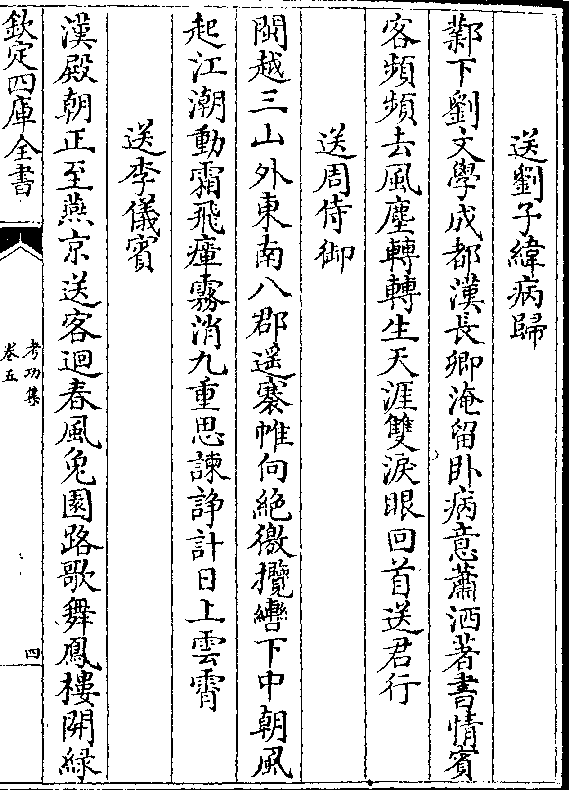 送劉子緯病歸
鄴下劉文學成都漢長卿淹留卧病意蕭洒著書情賓
客頻頻去風塵轉轉生天涯雙淚眼回首送君行
送周侍御
閩越三山外東南八郡遥褰帷向絶徼攬轡下中朝風
起江潮動霜飛瘴霧消九重思諫諍計日上雲霄
送李儀賓
漢殿朝正至燕京送客迴春風兔園路歌舞鳳樓開緑
欽定四庫全書
考功集
卷五
四